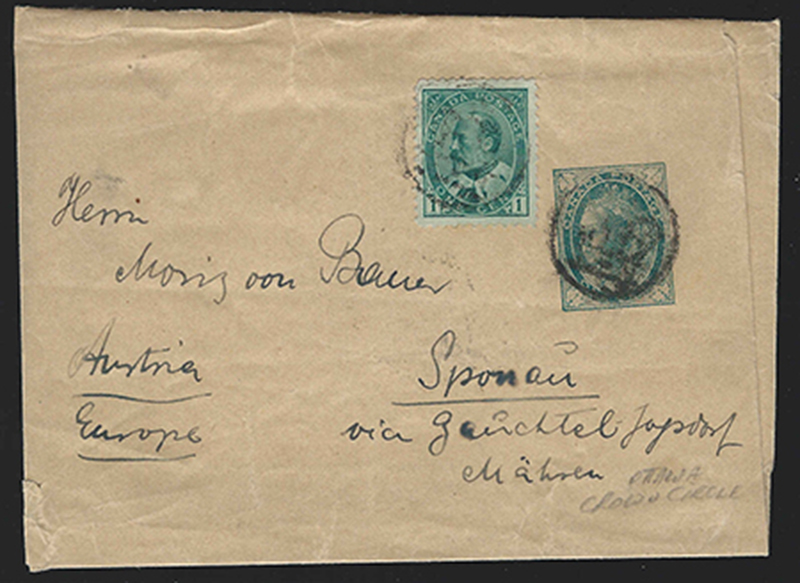 CANADA POSTAGE
ONE CENT
1 1
CANADA POSTAGE
Herrn
Moriz von Bauer
Austria
Europe
Sponau
via Gauchtel Jassdorf
Mähren
OTTAWA
CROWN CIRCLE